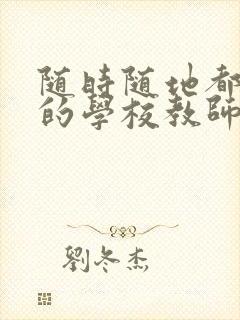 随時随地都
的學校教師
劉冬杰